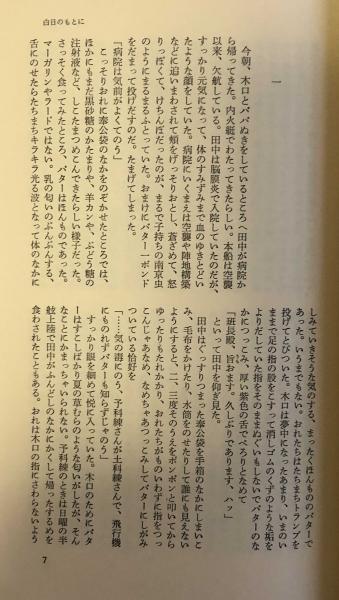 白日のもとに
一
今朝、木口とババぬきをしているところへ田中が病院か
ら帰ってきた。内火艇でわたってきたらしい。本船は空襲
以来、欠航している。田中は脳膜炎で入院していたのだが、
すっかり元気になって、体のすみずみまで血のゆきとどい
たような顔をしていた。病院にいくまえは空襲や陣地構築
などに追いまわされて頬をげっそりおとし、蒼ざめて、怒
りっぽくて、けちんぼだったのが、まるで子持ちの南京虫
のようにまるまるふとっていた。おまけにバター一ポンド
をだまって投げだすのだ。たまげてしまった。
「病院は気前がよくてのう」
こっそりおれに奉公袋のなかをのぞかせたところでは、
ほかにもまだ黒砂糖のかたまりや、羊カンや、ぶどう糖の
注射液など、しこたまつめこんできたらしい様子だった。
さっそく食ってみたところ、バターはほんものであった。
マーガリンやラードではない。乳の匂いのぷんぷんする、
舌にのせたらたちまちキラキラ光る波となって体のなかに
しみていきそうな気のする、まったくほんもののバターで
あった。いうまでもない。おれたちはたちまちトランプを
投げてとびついた。木口は夢中になったあまり、いまのい
ままで足の指の股をこすって消しゴムのくずのような垢を
よりだしていた指をそのままぬぐいもしないでバターのな
かにつっこみ、厚い紫色の舌でべろりとなめて
「班長殿、旨おます。久しぶりであります、ハッ」
といって田中を仰ぎ見た。
田中はぐっすりつまった奉公袋を手箱のなかにしまいこ
み、毛布をかけたり、水筒をのせたりして誰にも見えない
ようにすると、二、三度そのうえをポンポンと叩いてから
ゆったりもたれかかり、おれたちがものいわずに指をつっ
こんじゃあなめ、なめちゃあつっこみしてバターにしがみ
ついている恰好を
「……気の毒にのう、予科練さんが土科練さんで、飛行機
にものれずバターも知らずじゃのう」
すっかり眼を細めて悦に入っていた。木口のためにバタ
ーはすこしばかり夏の草むらのような匂いがしたが、そん
なことにかまっちゃいられない。予科練のときは日曜の半
舷上陸で田中がふんどしのなかにかくして帰ったするめを
食わされたこともある。おれは木口の指にさわらないよう
7